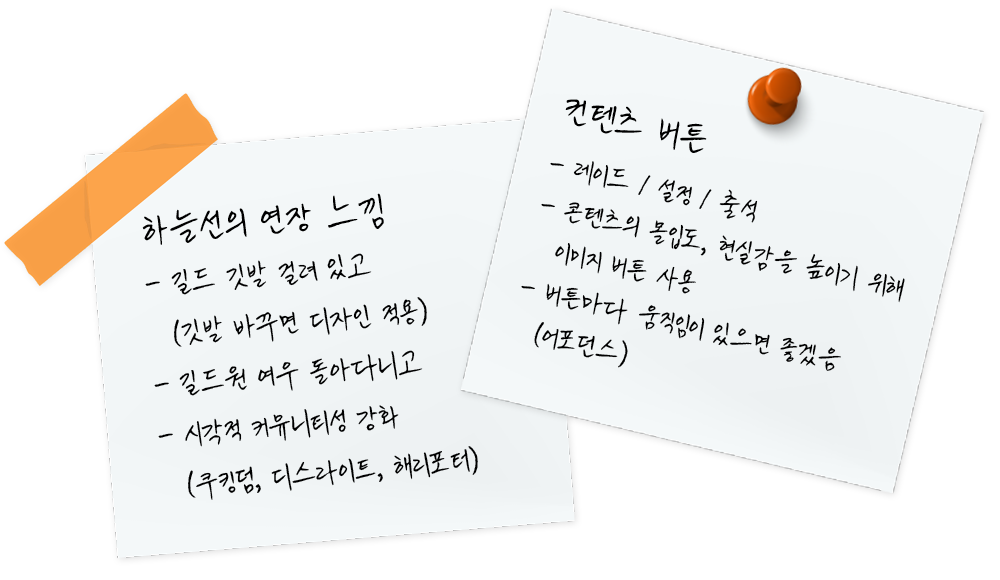 하늘선의 연장 느낌
- 길드 깃발 걸려 있고
(깃발 바꾸면 디자인 적용)
- 길드원 여우 돌아다니고
- 시각적 커뮤니티성 강화
(쿠킹덤, 디스라이트, 해리포터)
컨텐츠 버튼
- 레이드 / 설정 / 출석
- 콘텐츠의 몰입도, 현실감을 높이기 위해
이미지 버튼 사용
- 버튼마다 움직임이 있으면 좋겠음
(어포던스)